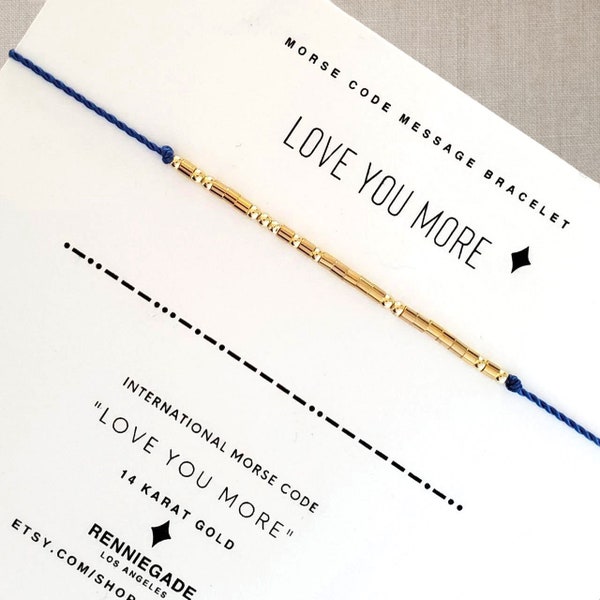 MORSE CODE MESSAGE BRACELET
LOVE YOU MORE
INTERNATIONAL MORSE CODE
"LOVE YOU MORE"
14 KARAT GOLD
RENNIEGADE
LOS ANGELES
ETSY.COM/SHOP